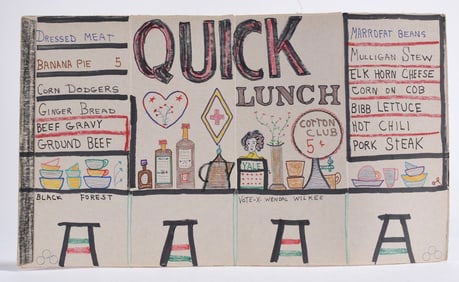 DRESSED MEAT
BANANA PIE 5
CORN DODGERS
GINGER BREAD
BEEF GRAVY
GROUND BEEF
BLACK FOREST
QUICK
LUNCH
COTTON
CLUB
5¢
YALE
VOTE-X- WENDAL WILKEE
MARROFAT BEANS
MULLIGAN STEW
ELK HORN CHEESE
CORN ON COB
BIBB LETTUCE
HOT CHILI
PORK STEAK